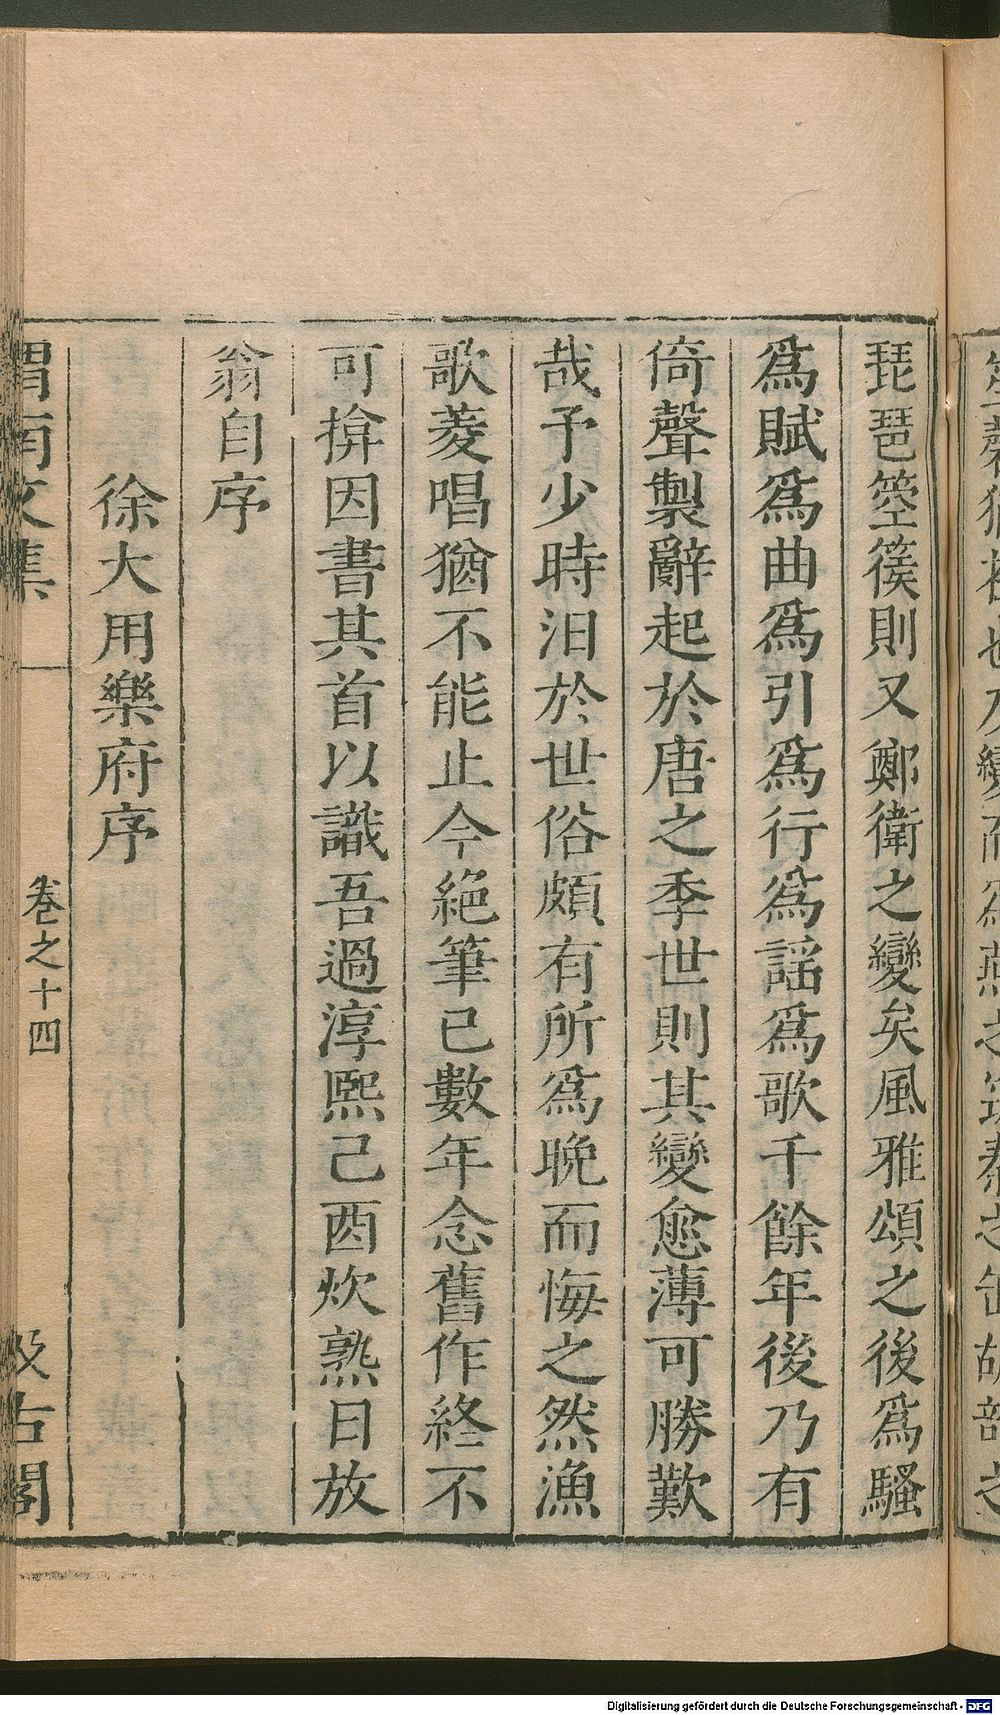 琵琶箜篌則又鄭衛之變矣風雅頌之後爲騷
爲賦爲曲爲引爲行爲謡爲歌千餘年後乃有
倚聲製辭起於唐之季世則其變愈薄可勝歎
哉予少時汨於世俗頗有所爲晚而悔之然漁
歌菱唱猶不能止今絶筆已數年念舊作終不
可揜因書其首以識吾過淳熙己酉炊熟日放
翁自序
徐大用樂府序
渭南文集 卷之十四 汲古閣
Digitalisierung gefördert durch die Deutsche Forschungsgemeinschaft - DFG